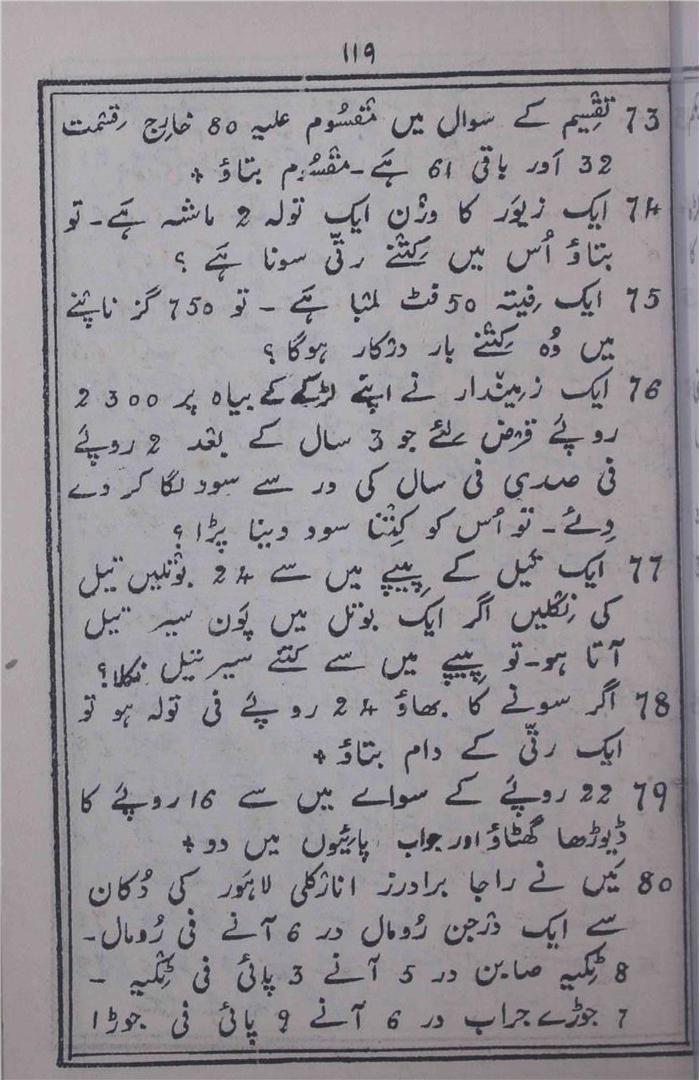 ۱۱۹
73 تقسیم کے سوال میں مقسُوم علیہ 80 خارج قسمت
32 اَور باقی 61 ہَے۔ مقسُوم بتاؤ +
74 ایک زیوَر کا وزن ایک تولہ 2 ماشہ ہَے۔ تو
بتاؤ اُس میں کِتنے رتّی سونا ہَے ؟
75 ایک فِیتہ 50 فٹ لمبا ہَے ۔ تو 750 گز ناپنے
میں وُہ کِتنے بار درکار ہوگا ؟
76 ایک زمیندار نے اپنے لڑکے کے بیاہ پر 2300
روپئے قرض لئے جو 3 سال کے بعد 2 روپئے
فی صدی فی سال کی در سے سود لگا کر دے
دِئے ۔ تو اُس کو کِتنا سود دینا پڑا ؟
77 ایک تیل کے پِیپے میں سے 24 بوتلیں تیل
کی نِکلیں اگر ایک بوتل میں پَون سیر تیل
آتا ہو۔ تو پِیپے میں سے کتنے سیر تیل نکلا ؟
78 اگر سونے کا بھاؤ 24 روپئے فی تولہ ہو تو
ایک رتّی کے دام بتاؤ +
79 22 روپئے کے سواے میں سے 16 روپئے کا
ڈیوڑھا گھٹاؤ اور جواب پائیوں میں دو +
80 مَیں نے راجا برادرز انارکلی لاہَور کی دُکان
سے ایک درجن رُومال در 6 آنے فی رُومال۔
8 ٹِکیہ صابن در 5 آنے 3 پائی فی ٹِکیہ ۔
7 جوڑے جراب در 6 آنے 9 پائی فی جوڑا